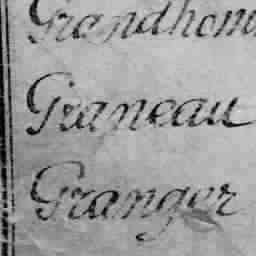 Grandhom
Graneau
Granger